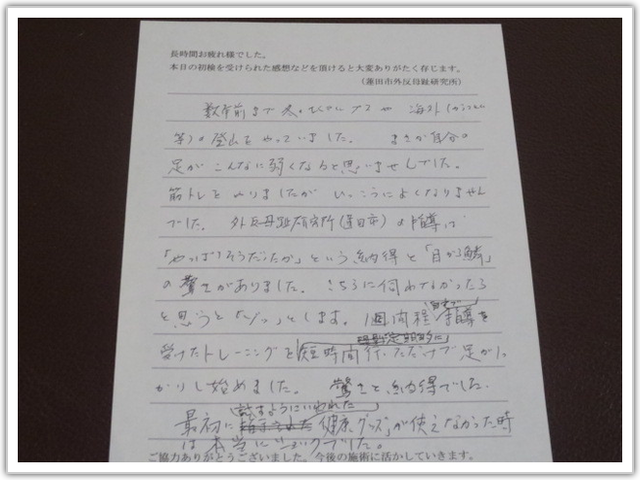 長時間お疲れ様でした。
本日の初検を受けられた感想などを頂けると大変ありがたく存じます。
(蓮田市外反母趾研究所)
数年前まで冬の北アルプスや 海外
等)の登山をやっていました。 まさか自分の
足がこんなに弱くなると思いませんでした。
筋トレをやりましたが いっこうによくなりません
でした。 外反母趾研究所(蓮田市)の指導で
「やっぱりそうだったか」という納得と「目から鱗」
の驚きがありました。 こちらに伺わなかったら
と思うと「ゾッ」とします。 1週間程 自宅で 指導を
受けたトレーニングを 短時間行っただけで足がし
っかりし始めました。 驚きと納得でした。
最初に 健康グッズ」が使えなかった時
は本当にショックでした。
ご協力ありがとうございました。今後の施術に活かしていきます。